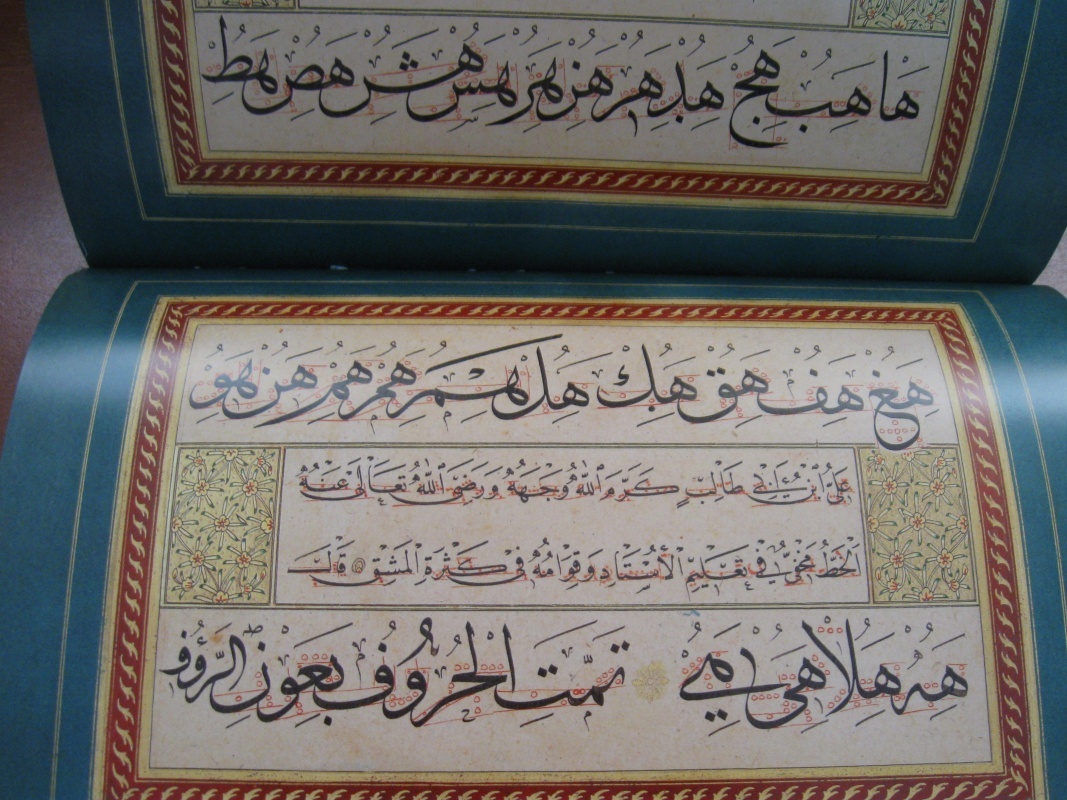 ها هب هج هد هر هز هر هس هش هص هط
هغ هف هق هك هل هم هم هم هن هو
علي ابن أبي طالب كرم الله وجهه ورضي الله تعالى عنه
الخط مخفي في تعليم الأستاد وقوامه في كثرة المشق قال
هه هلا هي تمت الحروف بعون الرؤوف